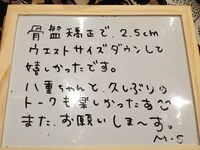 骨盤矯正で、2.5cm
ウエストサイズダウンして
嬉しかったです。
八重ちゃんと、久しぶりの
トークも楽しかったあ
また、お願いしま〜す。
M.S